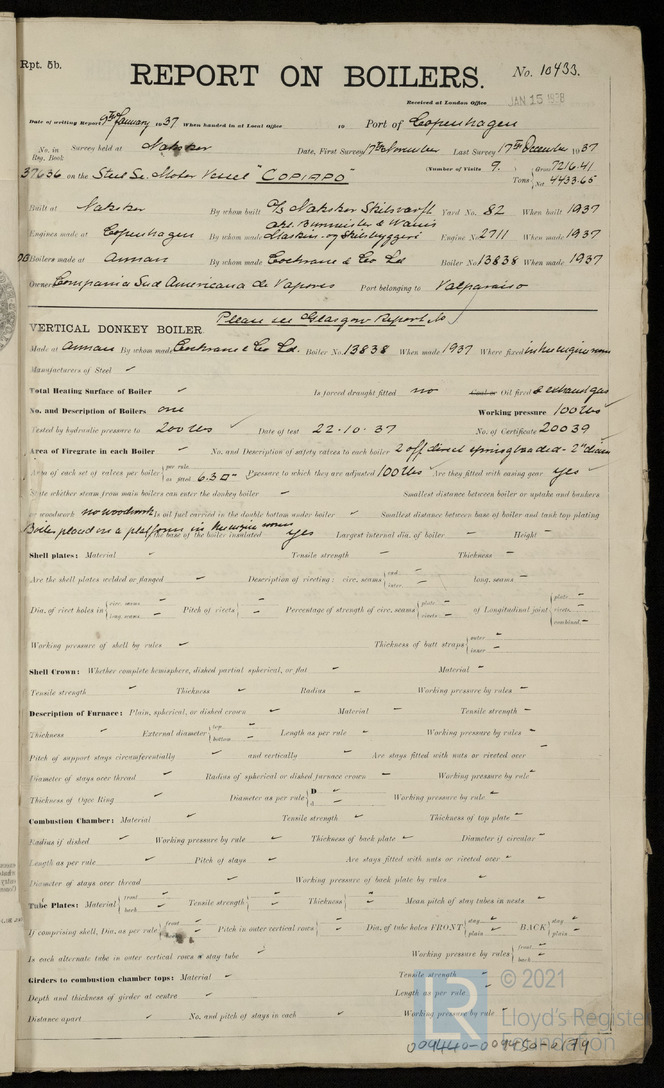 Rpt. 5b.
REPORT ON BOILERS.
No. 10433.
Received at London Office JAN 15 1938
Date of writing Report January 1937 When handed in at Local Office 19 Port of Copenhagen
No. in Reg. Book Survey held at Nakskov Date, First Survey 17th November Last Survey 17th December 1937
(Number of Visits 9.) Gross 7216.41
37636 on the Steel Sc. Motor Vessel "COPIAPO" Tons Net 4433.65
Built at Nakskov By whom built A/S Nakskov Skibsværft Yard No. 82 When built 1937
Engines made at Copenhagen By whom made Akt. Burmeister & Wain's Maskin- og Skibsbyggeri Engine No. 2711 When made 1937
Boilers made at Annan By whom made Cochrane & Co Ld Boiler No. 13838 When made 1937
Owners Compania Sud Americana de Vapores Port belonging to Valparaiso
Please see Glasgow Report No
VERTICAL DONKEY BOILER.
Made at Annan By whom made Cochrane & Co. Ld. Boiler No. 13838 When made 1937 Where fixed in the engine room
Manufacturers of Steel
Total Heating Surface of Boiler Is forced draught fitted no Coal or Oil fired & exhaust gas
No. and Description of Boilers one Working pressure 100 lbs
Tested by hydraulic pressure to 200 lbs Date of test 22-10-37 No. of Certificate 20039
Area of Firegrate in each Boiler No. and Description of safety valves to each boiler 2 off direct spring loaded - 2" diam
Area of each set of valves per boiler per rule as fitted 6.3 □" Pressure to which they are adjusted 100 lbs Are they fitted with easing gear yes
State whether steam from main boilers can enter the donkey boiler Smallest distance between boiler or uptake and bunkers
or woodwork no woodwork Is oil fuel carried in the double bottom under boiler Smallest distance between base of boiler and tank top plating
Boiler placed on a platform in the engine room the base of the boiler insulated yes Largest internal dia. of boiler Height
Shell plates: Material Tensile strength Thickness
Are the shell plates welded or flanged Description of riveting: circ. seams end inter. long. seams
Dia. of rivet holes in circ. seams long. seams Pitch of rivets Percentage of strength of circ. seams plate rivets of Longitudinal joint plate rivets combined
Working pressure of shell by rules Thickness of butt straps outer inner
Shell Crown: Whether complete hemisphere, dished partial spherical, or flat Material
Tensile strength Thickness Radius Working pressure by rules
Description of Furnace: Plain, spherical, or dished crown Material Tensile strength
Thickness External diameter top bottom Length as per rule Working pressure by rules
Pitch of support stays circumferentially and vertically Are stays fitted with nuts or riveted over
Diameter of stays over thread Radius of spherical or dished furnace crown Working pressure by rule
Thickness of Ogee Ring Diameter as per rule D d Working pressure by rule
Combustion Chamber: Material Tensile strength Thickness of top plate
Radius if dished Working pressure by rule Thickness of back plate Diameter if circular
Length as per rule Pitch of stays Are stays fitted with nuts or riveted over
Diameter of stays over thread Working pressure of back plate by rules
Tube Plates: Material front back Tensile strength Thickness Mean pitch of stay tubes in nests
If comprising shell, Dia. as per rule front back Pitch in outer vertical rows Dia. of tube holes FRONT stay plain BACK stay plain
Is each alternate tube in outer vertical rows a stay tube Working pressure by rules front back
Girders to combustion chamber tops: Material Tensile strength
Depth and thickness of girder at centre Length as per rule
Distance apart No. and pitch of stays in each Working pressure by rule
LR © 2021 Lloyd's Register Foundation
009440-009450-0179